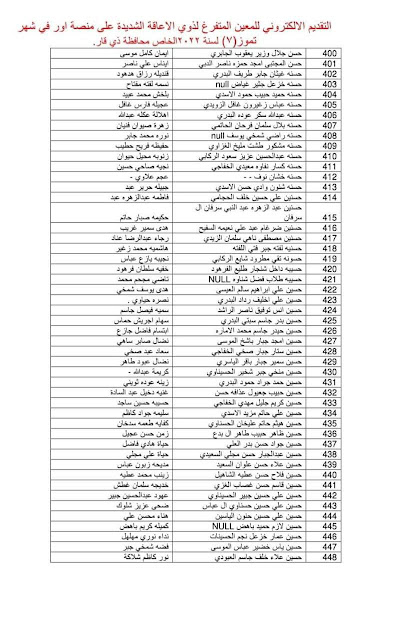 التقديم الالكتروني للمعين المتفرغ لذوي الاعاقة الشديدة على منصة اور في شهر
تموز(٧) لسنة ٢٠٢٢الخاص محافظة ذي قار.
400 حسن جلال وزير يعقوب الجابري ايمان كامل موسى
401 حسن المجتبى امجد حمزه ناصر ايناس علي ناصر
402 حسنه غيثان جابر طريف البدري قنديله رزاق هدهود
403 حسنه خزعل جثير غياض null نسمه لفته مفتاح
404 حسنه حميد حبيب حمود الاسدي بلخش محمد عبيد
405 حسنه عباس زغيرون غافل الزويدي عجيله فارس غافل
406 حسنه عبدالله سكر عوده البدري اهلالة عكله عبدالله
407 حسنه بلال سلمان فرحان الحاتمي زهرة صيوان فنيان
408 حسنه راضي شمخي يوسف null نوره محمد جابر
409 حسنه مشكور طشت مليخ الغزاوي حفيظه فريح حطيب
410 حسنه عبدالحسين عزيز سعود الركابي زنوبه محيل حيوان
411 حسنه كسار نفاوه معيدي الخفاجي نجيه صاحي حسين
412 حسنه خشان نوف - - عجم علاوي -
413 حسنه شنون وادي حسن الاسدي جبيله حرير عبد
414 حسنين علي حسين خلف الحجامي فاطمه عبدالزهره عبد
415 حسنين عبد الزهره عبد النبي سرفان ال سرفان حكيمه صبار حاتم
416 حسنين ضرغام عبد علي نعيمه السفيح هدى سمير غريب
417 حسنين مصطفى ناهي سلمان الزيدي رجاء عبدالرضا عناد
418 حسنيه لفته جبر فتي اللفته هاشميه محمد زغير
419 حسونه ثقي مطرود شايع الركابي نجيبه يازع عباس
420 حسيبه داخل شنجار طليع الفرهود خفيه سلطان فرهود
421 حسيبه طلاب فضل شناوه NULL ناضي مجحم محمد
422 حسين علي ابراهيم سالم العيسى هدى يوسف شمخي
423 حسين علي اخليف رداد البدري نصره حياوي .
424 حسين انس توفيق ناصر الراشد سميه فيصل جاسم
425 حسين بدر جاسم سبتي البدري سهام اجريش حماس
426 حسين حيدر جاسم محمد الاماره ابتسام فاضل جازع
427 حسين امجد جبار باشخ الموسى نضال صابر ساهي
428 حسين ستار جبار صخي الخفاجي سعاد عبد صخي
429 حسين سمير جبار باقر الياسري نضال عبود طاهر
430 حسين منخي جبر شخير الحسيناوي كريمة عبدالله -
431 حسين حمد جراد حمود البدري زينه عوده ثويني
432 حسين حبيب جعيول عذافه حسن غنيه دخيل عبد السادة
433 حسين كريم جليل مهدي الخفاجي حسيبه حسين ساجد
434 حسين علي حاتم مزيد الاسدي سليمه جواد كاظم
435 حسين هيثم حاتم عليخان الحسناوي كفايه طعمه سدخان
436 حسين ظاهر حبيب ظاهر ال بدع زمن حسن عجيل
437 حسين جواد حسن بدر العلي حياة هادي فاضل
438 حسين عبدالجبار حسن مجلي السعيدي حياة علي مجلي
439 حسين علاء حسن علوان السعيد مديحه زبون عباس
440 حسين فلاح حسن عطيه الشاهيل زينب محمد عطيه
441 حسين قاسم حسن غضاب الغزي خديجه سلمان غطش
442 حسين علي حسين جبير الحسيناوي عهود عبدالحسين جبير
443 حسين علي حسين حسناوي ال عباس حسن عزيز شلوك
444 حسين علي حسين حنون الياسين هناء محسن علي
445 حسين لازم حميد باهض NULL كميله كريم باهض
446 حسين عمار خزعل نجم الحسينات نداء نوري مهلهل
447 حسين ياس خضير عباس الموسى فضه شمخي جبر
448 حسين علاء خلف جاسم العبودي نور كاظم شلاكة